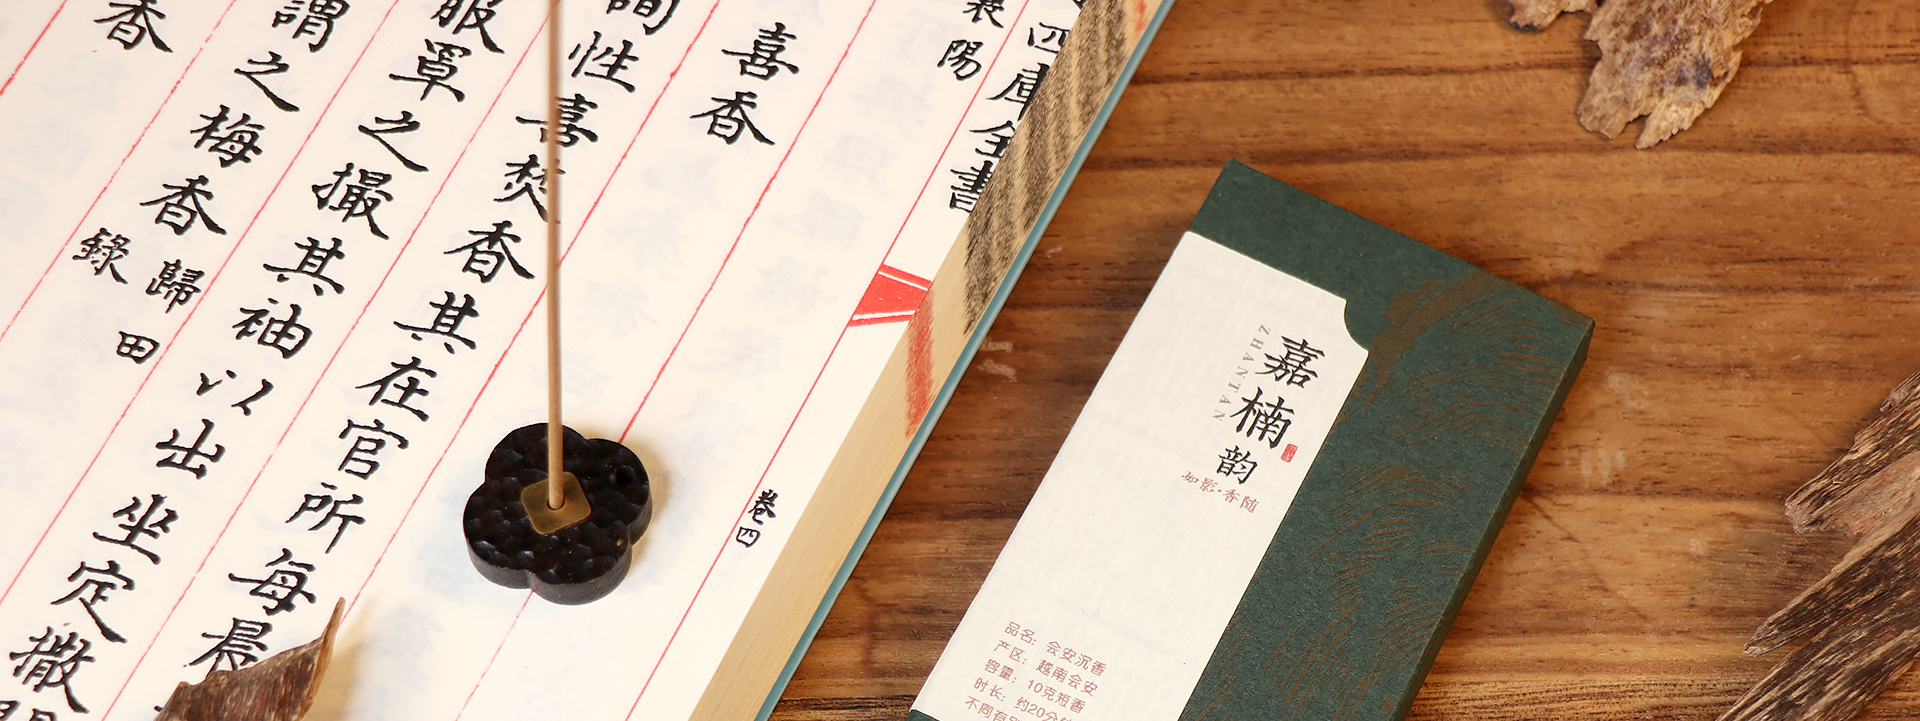 四庫全書
襄陽
卷四
喜香
間性喜焚香其在官所每晨
服罩之撮其袖以出坐定撒
謂之梅香歸田
錄
香
嘉楠韵
ZHANTAN
如影·香随
品名：会安沉香
产区：越南会安
容量：10克短香
时长：约20分钟
不同有